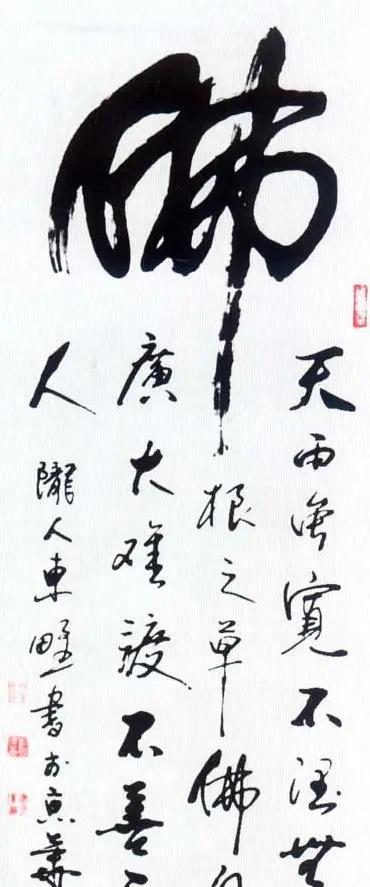 佛
天雨雖寬不潤無
根之草佛
廣大難渡不善
人
隴人東野書於京華